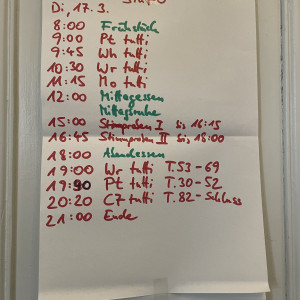 Di, 17. 3.
8:00 Frühstück
9:00 Pt tutti
9:45 Wh tutti
10:30 Wr tutti
11:15 Mo tutti
12:00 Mittagessen
Mittagsruhe
15:00 Stimmproben I bis 16:15
16:45 Stimmproben II bis 18:00
18:00 Abendessen
19:00 Wr tutti T.53-69
19:90 Pt tutti T.30-52
20:20 C7 tutti T.82-Schluss
21:00 Ende